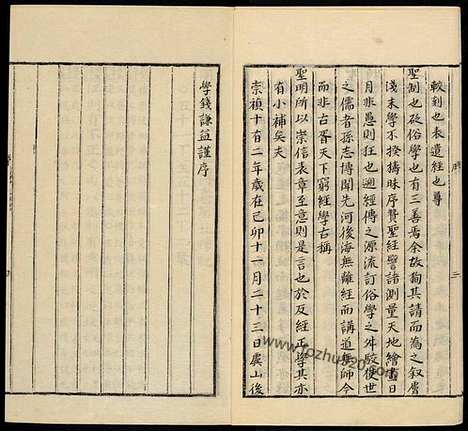 較刻也表遺經也尊
聖制也砭俗學也有三善焉余故狥其請而為之叙膚
淺末學不揆檮昧序贊聖經譬諸測量天地繪畫日
月非愚則狂也遡經傳之源流訂俗學之舛駮使世
之儒者孫志博聞先河後海無離經而講道無師今
而非古胥天下窮經學古稱
聖明所以崇信表章至意則是言也於反經正學其亦
有小補矣夫
崇禎十有二年歲在己卯十一月二十三日虞山後
學錢謙益謹序
三